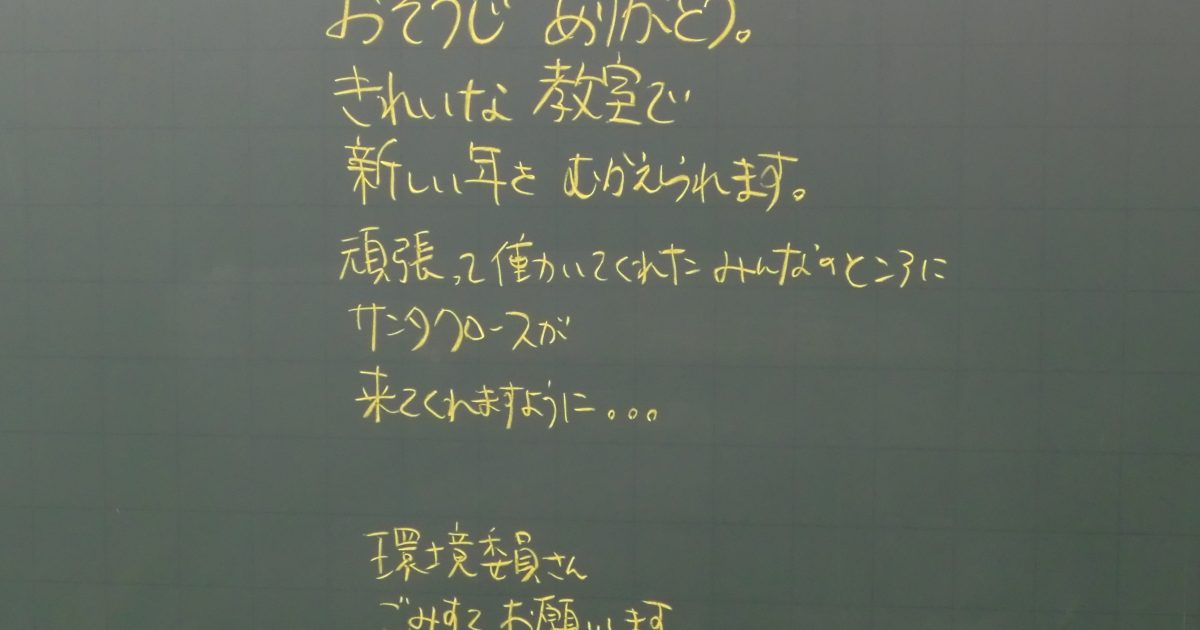 おそうじ ありがとう。
きれいな 教室で
新しい年を むかえられます。
頑張って働かいてくれた みんなのところに
サンタクロースが
来てくれますように。。。
環境委員さん
ごみすて お願いします